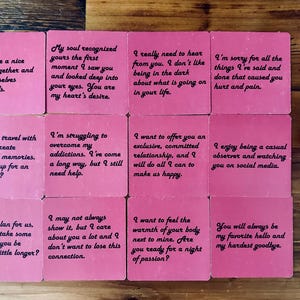 e a nice
gether and
selves
s.
My soul recognized
yours the first
moment I saw you
and looked deep into
your eyes. You are
my heart's desire.
I really need to hear
from you. I don't like
being in the dark
about what is going on
in your life.
I'm sorry for all the
things I've said and
done that caused you
hurt and pain.
travel with
reate
memories.
up for an
?
I'm struggling to
overcome my
addictions. I've come
a long way, but I still
need help.
I want to offer you an
exclusive, committed
relationship, and I
will do all I can to
make us happy.
I enjoy being a casual
observer and watching
you on social media.
lan for us.
take some
you be
little longer?
I may not always
show it, but I care
about you a lot and I
don't want to lose this
connection.
I want to feel the
warmth of your body
next to mine. Are
you ready for a night
of passion?
You will always be
my favorite hello and
my hardest goodbye.